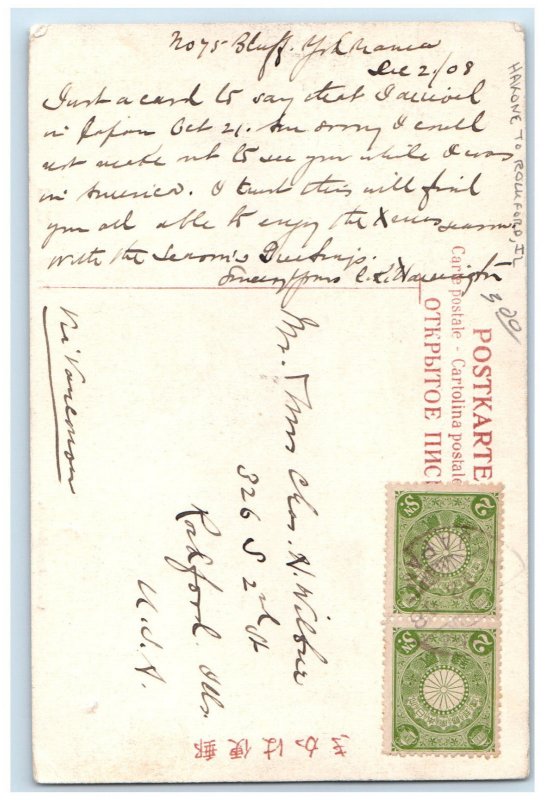 No 75 Bluff. Yokohama
Dec 2/08
Just a card to say that I arrived
in Japan Oct 21. Am sorry I could
not make out to see you while I was
in America. I trust this will find
you all able to enjoy the Xmas season
with the Season's Greetings.
Sincerely yours C. S. Harrington
HAKONE TO ROCKFORD, IL
3.00
Carte postale - Cartolina postale
POSTKARTE
ОТКРЫТОЕ ПИС
Via Vancouver
Mr. & Mrs Chas. H. Wilbur
326 S 2nd St
Rockford Ills.
U.S.A.
郵便はかき
2 Sn.
2 Sn.